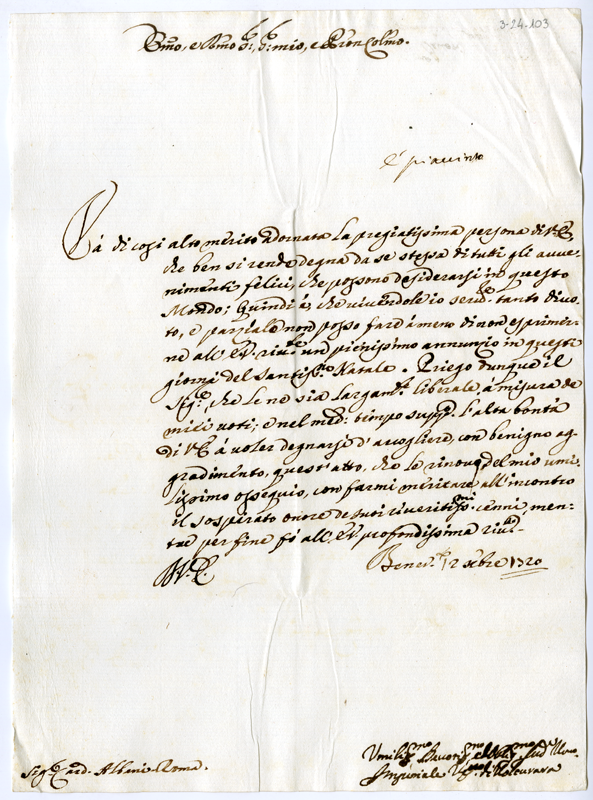 3-24-103
Emo, e Rmo Sr, Sr mio, e Pron Colmo.
È piaciuto
Và di così alto mérito adornata la pregiatissima persona di V.E.
che ben si rende degna da se stessa di tutti gli avve-
nimenti felici, che possono desiderarsi in questo
Mondo; Quindi è, che vivendole io servre tanto divo-
to, e parziale non posso fare à meno di non esprimer-
ne all' E.V. rivte un pienissimo annunzio in questi
giorni del Santissmo Natale. Priego dunque il
Sigre, che le ne sia largamte liberale à misura de
miei voti; e nel medo tempo suppco l'alta bontà
di V.E. à voler degnarsi d'accogliere, con benigno ag-
gradimento, quest'atto, che le rinova del mio umi-
lissimo ossequio, con farmi méritare all'incontro
il sospirato onore de suoi riveritissmi cenni, men-
tre per fine fò all' E.V. profondissima rivza
D.V.E. Benevto 12 Xbre 1720
Sigr Card. Albani Roma.
Umilissmo Devotissmo
Imperiale Vo di